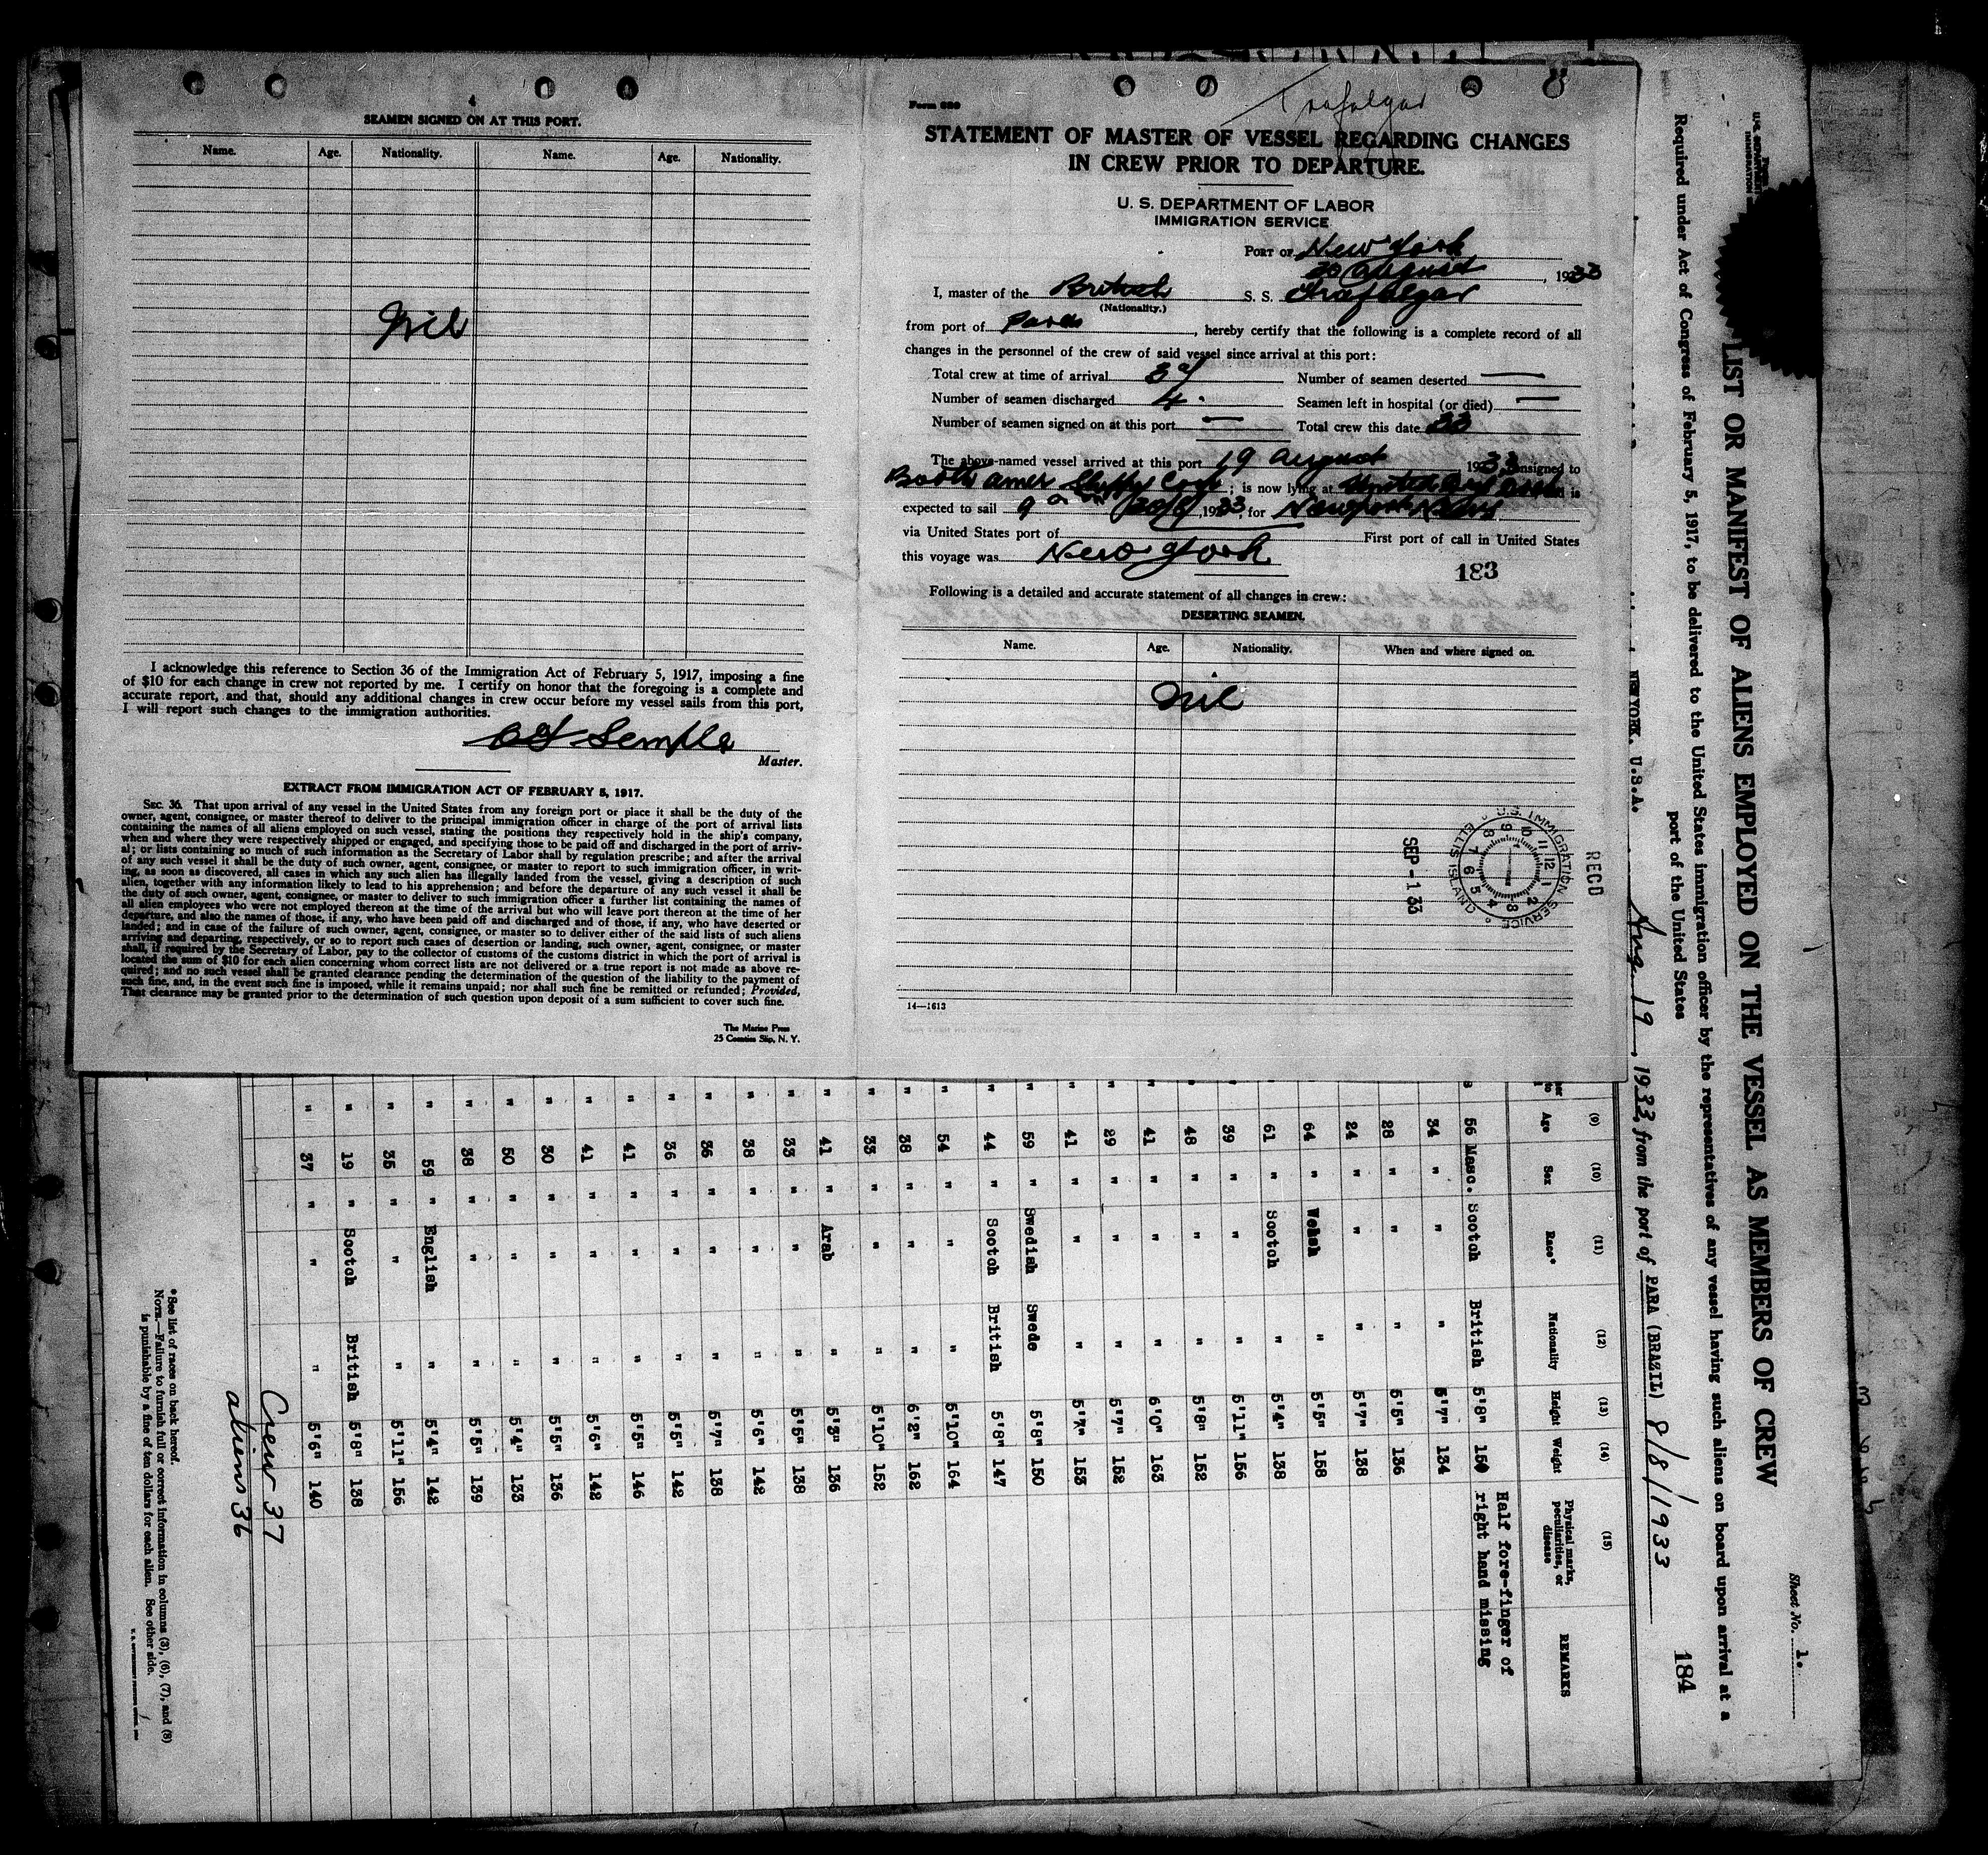 4
SEAMEN SIGNED ON AT THIS PORT.
Name. Age. Nationality. Name. Age. Nationality.
Nil
I acknowledge this reference to Section 36 of the Immigration Act of February 5, 1917, imposing a fine
of $10 for each change in crew not reported by me. I certify on honor that the foregoing is a complete and
accurate report, and that, should any additional changes in crew occur before my vessel sails from this port,
I will report such changes to the immigration authorities.
Semple
Master.
EXTRACT FROM IMMIGRATION ACT OF FEBRUARY 5, 1917.
SEC. 36. That upon arrival of any vessel in the United States from any foreign port or place it shall be the duty of the
owner, agent, consignee, or master thereof to deliver to the principal immigration officer in charge of the port of arrival lists
containing the names of all aliens employed on such vessel, stating the positions they respectively hold in the ship's company,
when and where they were respectively shipped or engaged, and specifying those to be paid off and discharged in the port of arriv-
al; or lists containing so much of such information as the Secretary of Labor shall by regulation prescribe; and after the arrival
of any such vessel it shall be the duty of such owner, agent, consignee, or master to report to such immigration officer, in writ-
ing, as soon as discovered, all cases in which any such alien has illegally landed from the vessel, giving a description of such
alien, together with any information likely to lead to his apprehension; and before the departure of any such vessel it shall be
the duty of such owner, agent, consignee, or master to deliver to such immigration officer a further list containing the names of
all alien employees who were not employed thereon at the time of the arrival but who will leave port thereon at the time of her
departure, and also the names of those, if any, who have been paid off and discharged and of those, if any, who have deserted or
landed; and in case of the failure of such owner, agent, consignee, or master so to deliver either of the said lists of such aliens
arriving and departing, respectively, or so to report such cases of desertion or landing, such owner, agent, consignee, or master
shall, if required by the Secretary of Labor, pay to the collector of customs of the customs district in which the port of arrival is
located the sum of $10 for each alien concerning whom correct lists are not delivered or a true report is not made as above re-
quired; and no such vessel shall be granted clearance pending the determination of the question of the liability to the payment of
such fine, and, in the event such fine is imposed, while it remains unpaid; nor shall such fine be remitted or refunded; Provided,
That clearance may be granted prior to the determination of such question upon deposit of a sum sufficient to cover such fine.
The Marine Press
25 Coenties Slip, N. Y.
Form 689
Trafalgar
STATEMENT OF MASTER OF VESSEL REGARDING CHANGES
IN CREW PRIOR TO DEPARTURE.
U. S. DEPARTMENT OF LABOR
IMMIGRATION SERVICE
PORT OF New York
30 August, 1933
I, master of the British S. S. Trafalgar
(Nationality.)
from port of Para, hereby certify that the following is a complete record of all
changes in the personnel of the crew of said vessel since arrival at this port:
Total crew at time of arrival 37 Number of seamen deserted —
Number of seamen discharged 4. Seamen left in hospital (or died) —
Number of seamen signed on at this port — Total crew this date 33
The above-named vessel arrived at this port 19 August 1933, consigned to
Booth Amer Shippg Corp; is now lying at United Dry Dock and is
expected to sail 9 a 1933, for Newport News
via United States port of First port of call in United States
this voyage was New York
183
Following is a detailed and accurate statement of all changes in crew:
DESERTING SEAMEN.
Name. Age. Nationality. When and where signed on.
Nil
RECD
U.S. IMMIGRATION SERVICE ELLIS ISLAND
SEP -1 33
14—1613
Sheet No. 1.
LIST OR MANIFEST OF ALIENS EMPLOYED ON THE VESSEL AS MEMBERS OF CREW
Required under Act of Congress of February 5, 1917, to be delivered to the United States immigration officer by the representatives of any vessel having such aliens on board upon arrival at a
port of the United States
184
NEW YORK. U.S.A. Aug. 19, 1933, from the port of PARA (BRAZIL) 8/8/1933
(9) (10) (11) (12) (13) (14) (15)
Age Sex Race* Nationality Height Weight Physical marks, peculiarities, or disease REMARKS
56 Masc. Scotch British 5'8" 150 Half fore-finger of right hand missing
34 " " " 5'7" 134
28 " " " 5'5" 136
24 " " " 5'7" 138
64 " Welsh " 5'5" 158
61 " Scotch " 5'4" 138
39 " " " 5'11" 156
48 " " " 5'8" 152
41 " " " 6'0" 163
29 " " " 5'7" 152
41 " " " 5'7" 153
59 " Swedish Swede 5'8" 150
44 " Scotch British 5'8" 147
54 " " " 5'10" 164
38 " " " 6'2" 162
33 " " " 5'10" 152
41 " Arab " 5'3" 136
33 " " " 5'5" 138
38 " " " 5'6" 142
36 " " " 5'7" 138
36 " " " 5'5" 142
41 " " " 5'5" 146
41 " " " 5'6" 142
30 " " " 5'5" 136
50 " " " 5'4" 133
38 " " " 5'5" 139
59 " English " 5'4" 142
35 " " " 5'11" 156
19 " Scotch British 5'8" 138
37 " " " 5'6" 140
Crew 37
aliens 36
* See list of races on back hereof.
NOTE.—Failure to furnish full or correct information in columns (3), (6), (7), and (8)
is punishable by a fine of ten dollars for each alien. See other side.